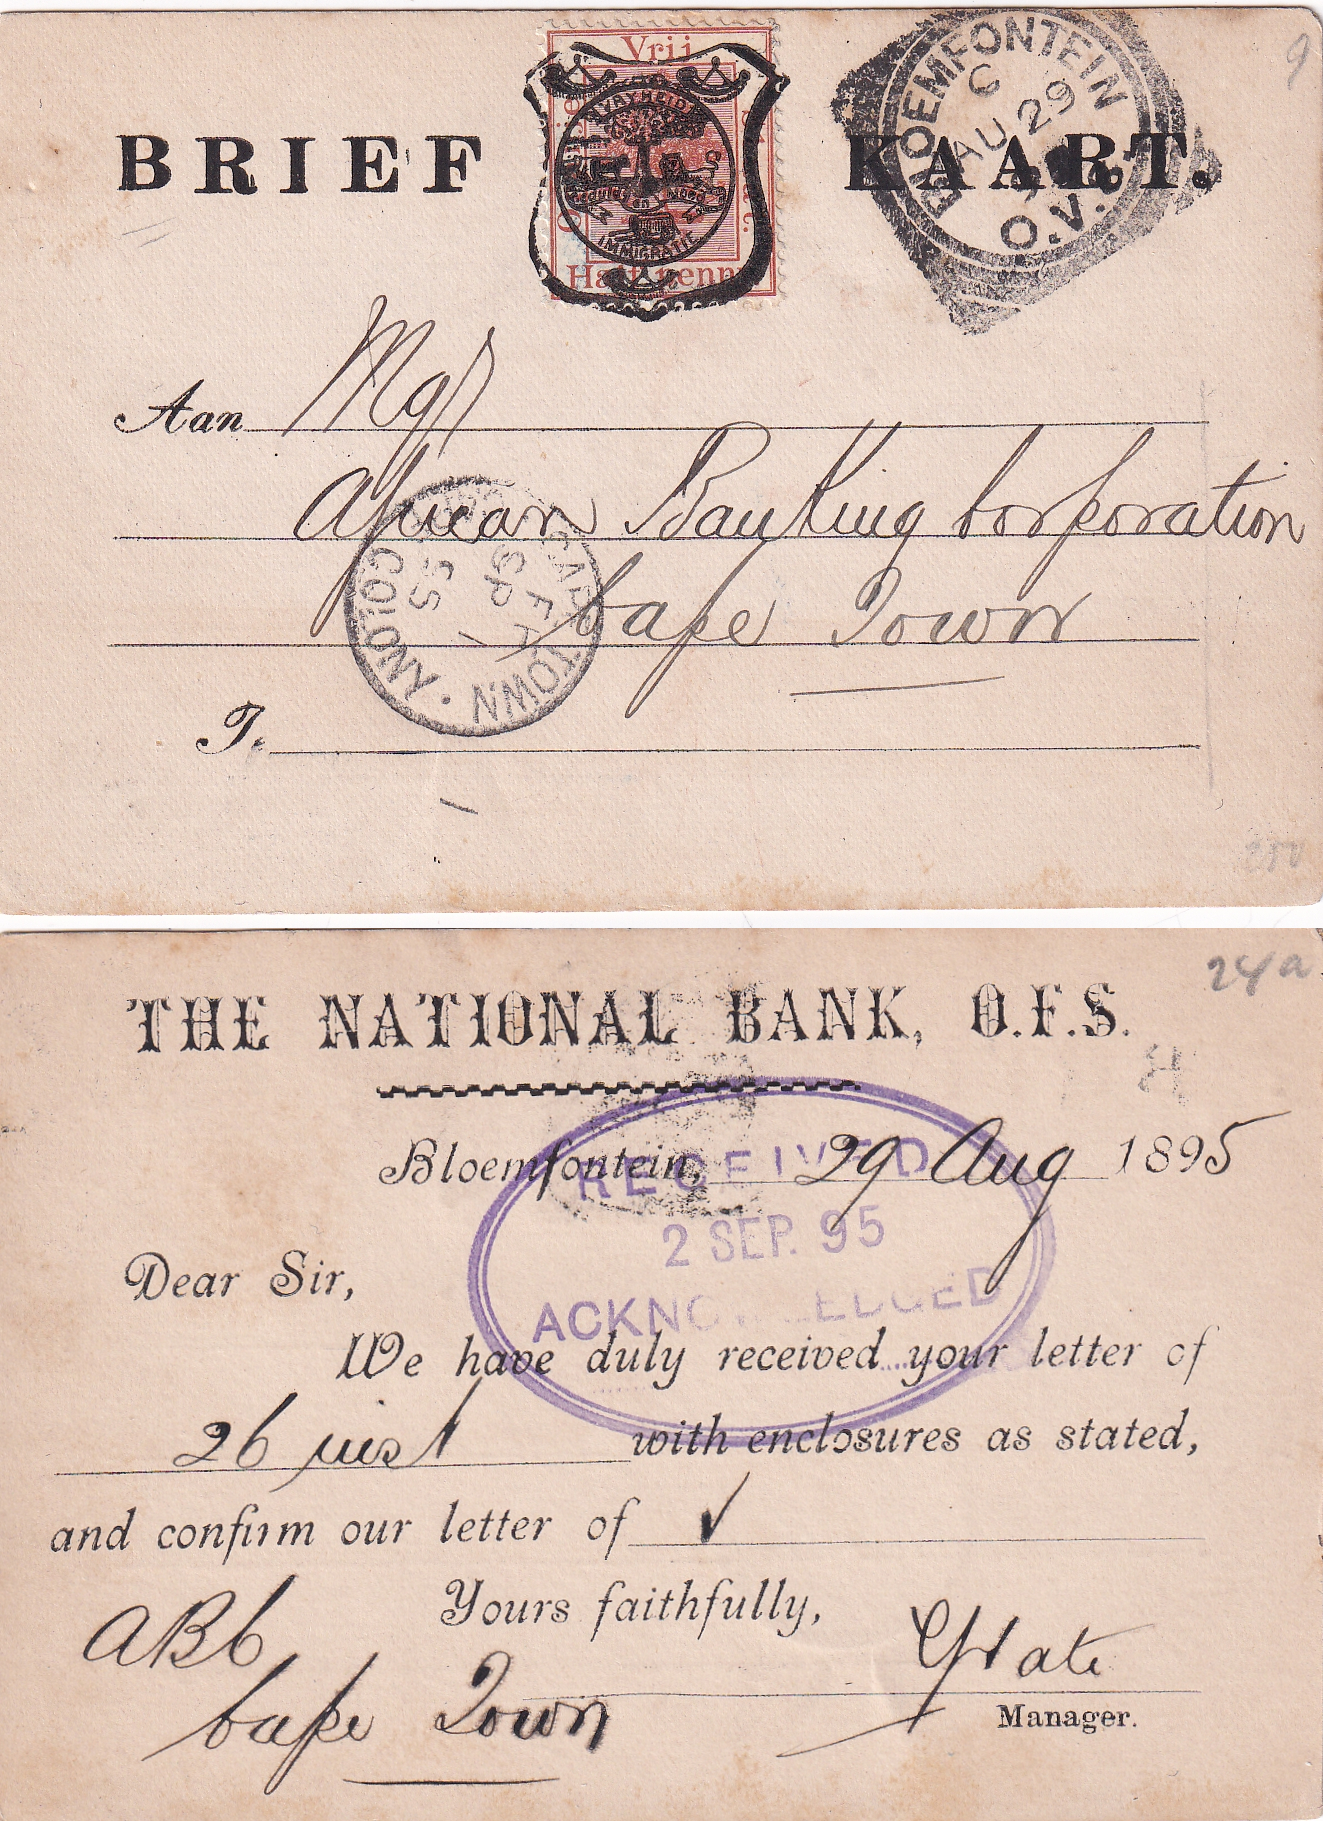 9
Vrij
BRIEF KAART.
VRYHEID
Geduld en Moed
IMMIGRATIE
Half penny
BLOEMFONTEIN
C
AU 29
95
O.V.S.
Aan Mgr
African Banking Corporation
Cape Town
T.
CAPE TOWN
SP 1
95
COLONY
250
24a
THE NATIONAL BANK, O.F.S.
Bloemfontein, 29 Aug 1895
RECEIVED
2 SEP. 95
ACKNOWLEDGED
Dear Sir,
We have duly received your letter of
26 inst with enclosures as stated,
and confirm our letter of ✓
Yours faithfully,
ABC
Cape Town
Manager.